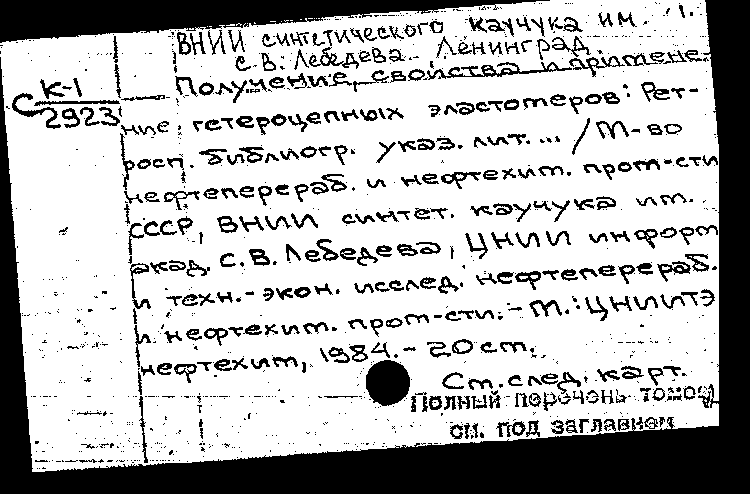 ВНИИ синтетического каучука им. 1.
С.В. Лебедева. Ленинград.
К-1
С
2923
Получение, свойства и примене-
ние гетероцепных эластомеров: Рет-
росп. библиогр. указ. лит. ... / М-во
нефтеперераб. и нефтехим. пром-сти
СССР, ВНИИ синтет. каучука им.
акад. С.В. Лебедева, ЦНИИ информ
и техн.-экон. исслед. нефтеперераб.
и нефтехим. пром-сти. - М.: ЦНИИТЭ
нефтехим, 1984. - 20 см.
См. след. карт.
Полный перечень томов
см. под заглавием